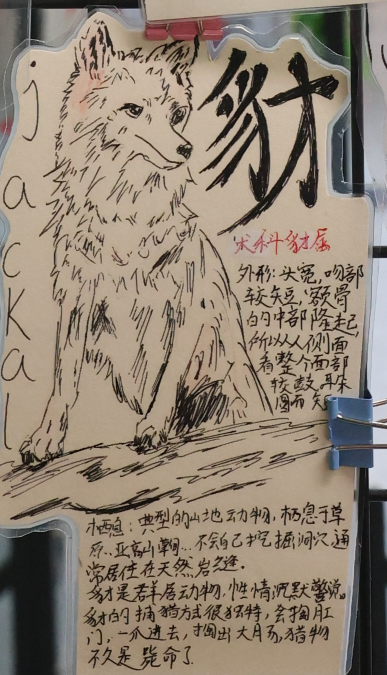 jackal
豺
犬科豺属
外形:头宽,吻部
较短,额骨
的中部隆起,
所以从侧面
看整个面部
较鼓,耳朵
圆而短
栖息:典型的山地动物,栖息于草
原、亚高山
不会自己挖掘洞穴通
常居住在天然岩
豺是群居动物,性情沉默警
豺的捕猎方式很独特,会掏肛
门,一爪进去,掏出大肠,猎物
不久是毙命了